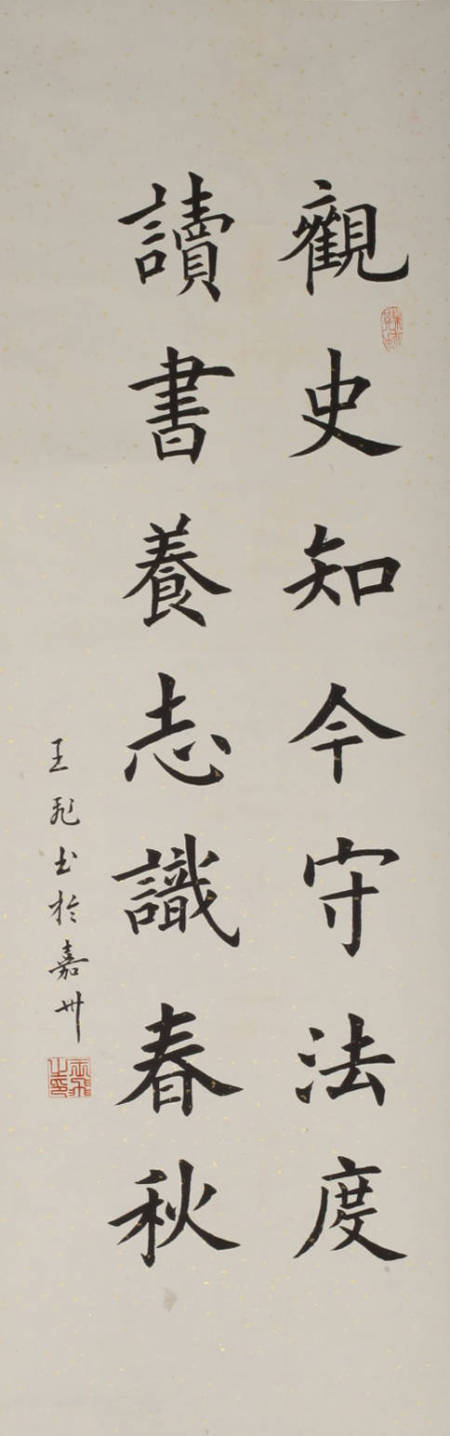 觀史知今守法度
讀書養志識春秋
王飛书於嘉州